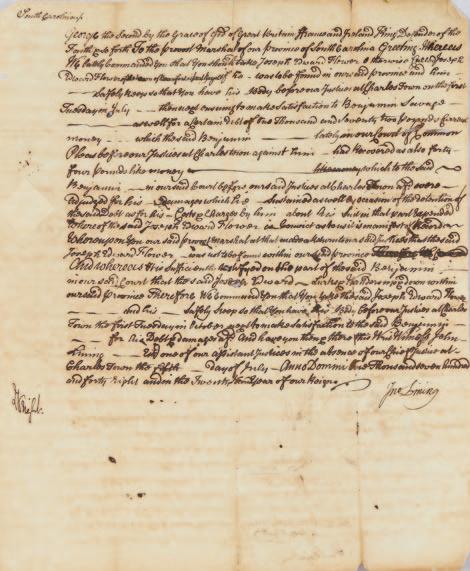 South Carolina ss.
George the Second by the Grace of God of Great Britain France and Ireland King Defender of the
Faith & so forth To the provost Marshal of our province of South Carolina Greeting Whereas
We lately commanded you that you should take Joseph Edward Flower otherwise called Joseph
Edward Flower if he was to be found in our said province and him
Safely keep so that you have his body before our Justices at Charles Town on the first
Tuesday in July thence next ensuing to make satisfaction to Benjamin Savage
as well for a Certain debt of One Thousand and Seventy two pounds Current
money which the said Benjamin lately in our Court of Common
Pleas before our Justices at Charles town against him had Recovered as also forty
four pounds like money like money which to the said
Benjamin in our said Court before our said Justices at Charles Town were
adjudged for his Damages which he sustained as well by occasion of the detention of
the said Debt as for his Costs & Charges by him about his Suit in that part Expended
Whereof the said Joseph Edward Flower is Convicted as to us is manifest of Record
Whereupon You our said provost Marshal at that make Return that the said
Joseph Edward Flower was not to be found within our said province
And whereas it is sufficiently testifyed on the part of the said Benjamin
in our said Court that the said Joseph Edward Lurkeys Wanders up & down within
our said province Therefore We Command You that You take the said Joseph Edward Flower
and him Safely Keep so that You have his Body before our Justices at Charles
Town the first Tuesday in October next to make satisfaction to the said Benjamin
for his Debt & damages afd. And have you then & there this Writ Witness John
Lining Esqr. one of our assistant Justices in the absence of our Chief Justice at
Charles Town the fifth day of July Anno Domini One Thousand seven hundred
and forty Eight and in the Twenty second Year of our Reign
Jno Lining
Wright